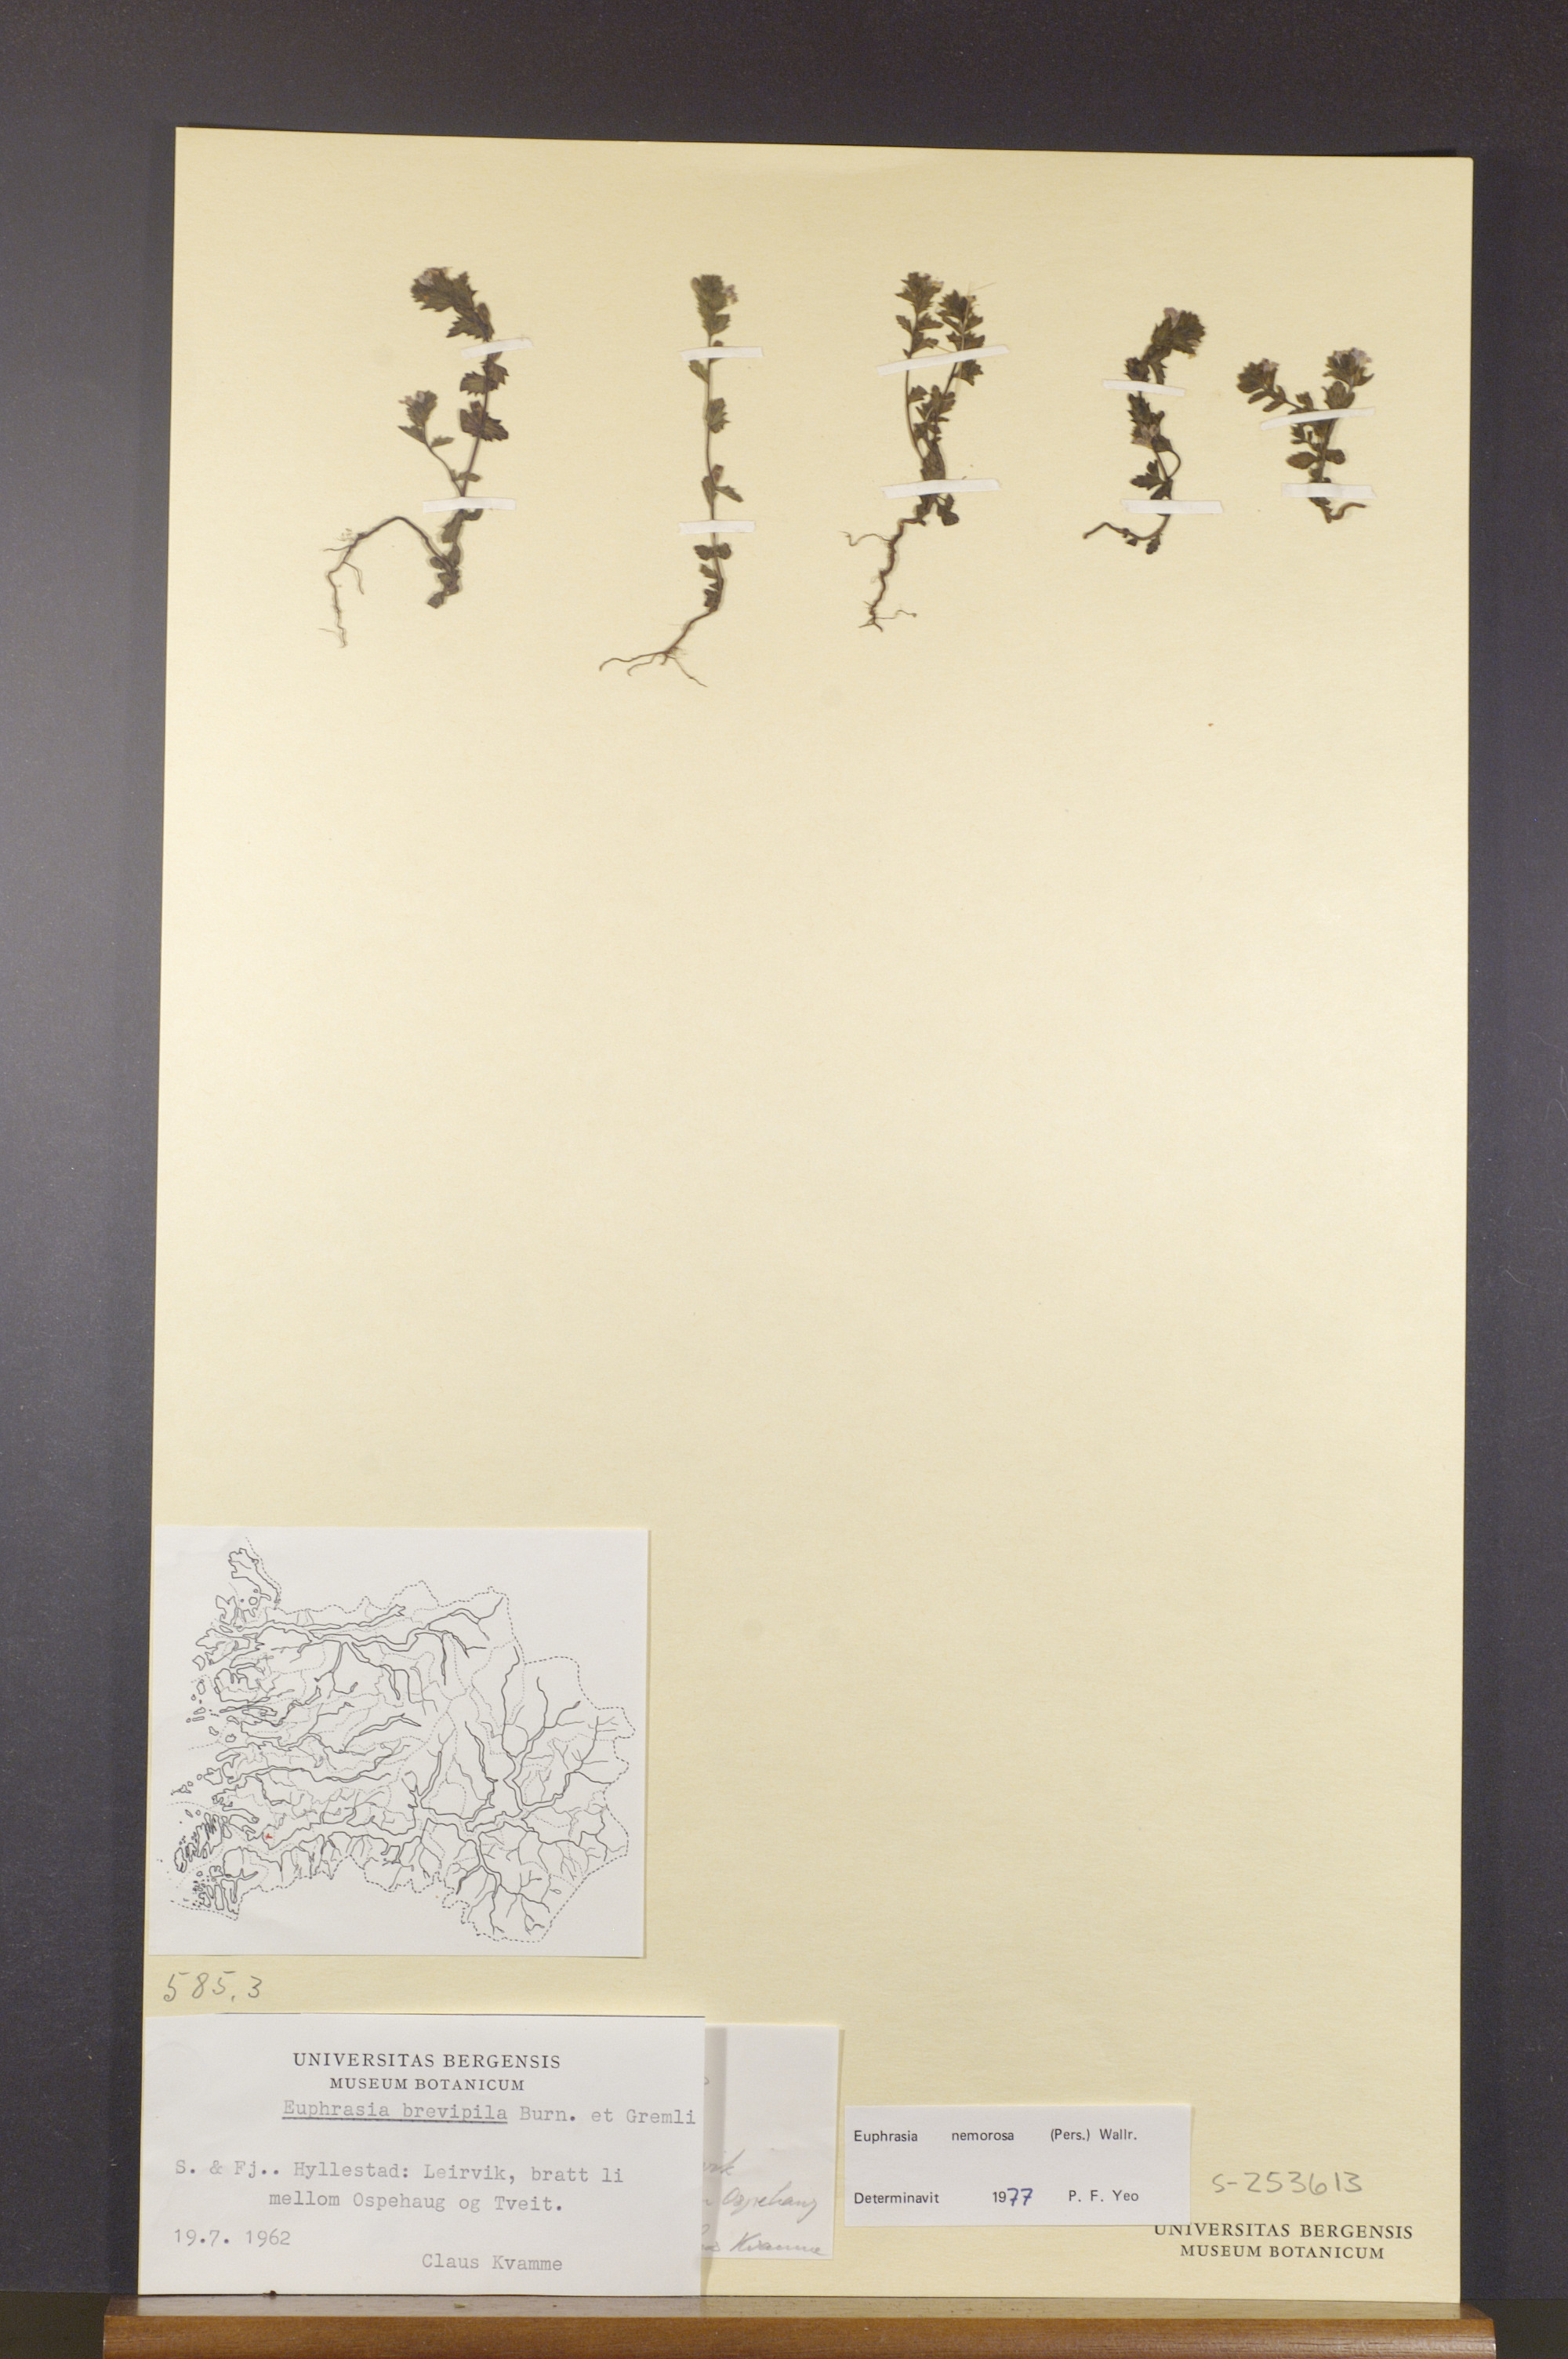 585.3
UNIVERSITAS BERGENSIS
MUSEUM BOTANICUM
Euphrasia brevipila Burn. et Gremli
S. & Fj.. Hyllestad: Leirvik, bratt li
mellom Ospehaug og Tveit.
19.7. 1962
Claus Kvamme
Ospehaug
Kvamme
Euphrasia nemorosa (Pers.) Wallr.
Determinavit 1977 P. F. Yeo
S-253613
UNIVERSITAS BERGENSIS
MUSEUM BOTANICUM